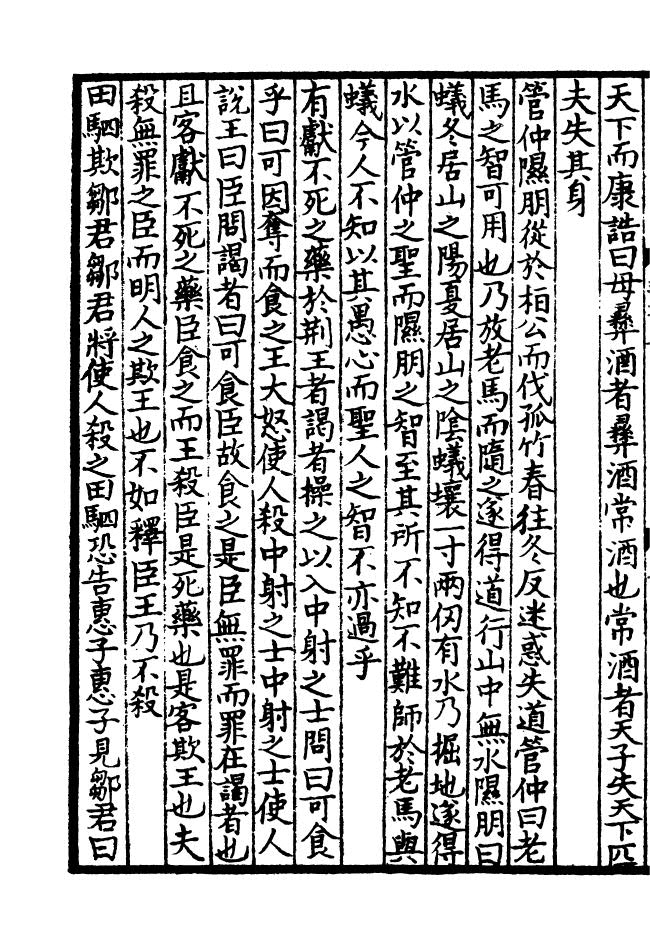 天下而康誥曰毋彝酒者彝酒常酒也常酒者天子失天下匹
夫失其身
管仲隰朋從於桓公而伐孤竹春往冬反迷惑失道管仲曰老
馬之智可用也乃放老馬而隨之遂得道行山中無水隰朋曰
蟻冬居山之陽夏居山之陰蟻壤一寸兩仞有水乃掘地遂得
水以管仲之聖而隰朋之智至其所不知不難師於老馬與
蟻今人不知以其愚心而聖人之智不亦過乎
有獻不死之藥於荆王者謁者操之以入中射之士問曰可食
乎曰可因奪而食之王大怒使人殺中射之士中射之士使人
說王曰臣問謁者曰可食臣故食之是臣無罪而罪在謁者也
且客獻不死之藥臣食之而王殺臣是死藥也是客欺王也夫
殺無罪之臣而明人之欺王也不如釋臣王乃不殺
田駟欺鄒君鄒君將使人殺之田駟恐告惠子惠子見鄒君曰